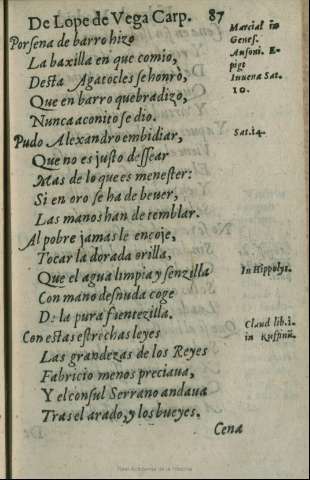 De Lope de Vega Carp. 87
Porsena de barro hizo
La baxilla en que comio,
Desta Agatocles se honrò,
Que en barro quebradizo,
Nunca aconito se dio.
Pudo Alexandro embidiar,
Que no es justo dessear
Mas de lo que es menester:
Si en oro se ha de beuer,
Las manos han de temblar.
Al pobre jamas le encoje,
Tocar la dorada orilla,
Que el agua limpia y senzilla
Con mano desnuda coge
De la pura fuentezilla.
Con estas estrechas leyes
Las grandezas de los Reyes
Fabricio menos preciaua,
Y el consul Serrano andaua
Tras el arado, y los bueyes.
Cena
Marcial in
Genes.
Ausoni. E-
pige
Iuuena Sat.
10.
Sat.14.
In Hippolyt.
Claud lib.1.
in Ruffinũ.
Real Academia de la Historia